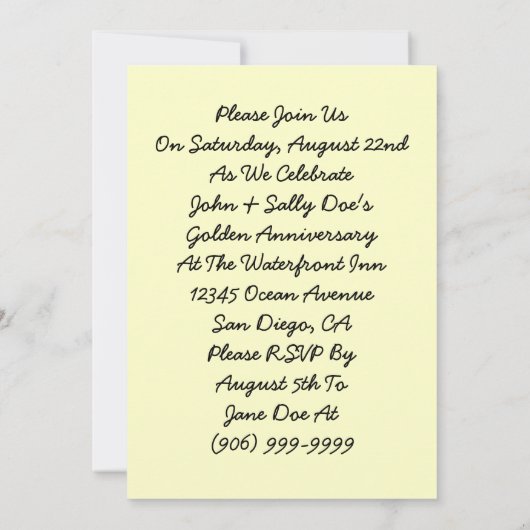 Please Join Us
On Saturday, August 22nd
As We Celebrate
John + Sally Doe's
Golden Anniversary
At The Waterfront Inn
12345 Ocean Avenue
San Diego, CA
Please RSVP By
August 5th To
Jane Doe At
(906) 999-9999